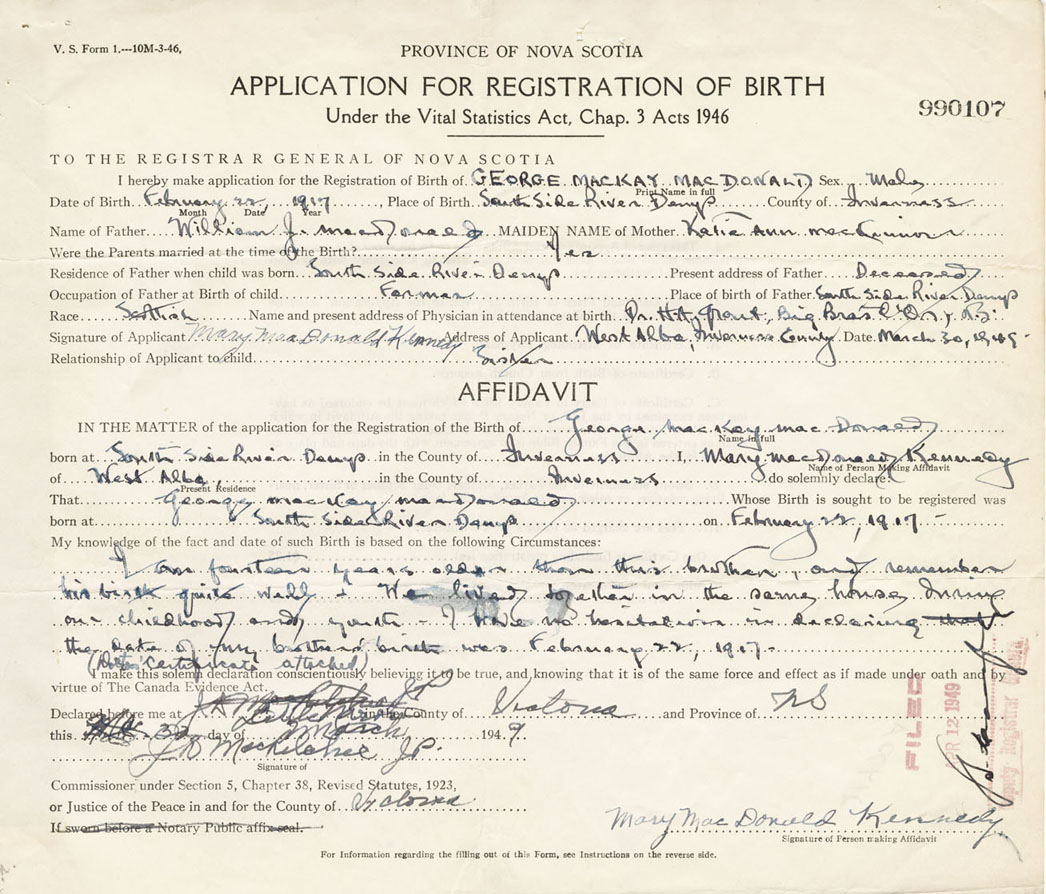 V. S. Form 1.---10M-3-46,
PROVINCE OF NOVA SCOTIA
APPLICATION FOR REGISTRATION OF BIRTH
Under the Vital Statistics Act, Chap. 3 Acts 1946
990107
TO THE REGISTRAR GENERAL OF NOVA SCOTIA
I hereby make application for the Registration of Birth of GEORGE MACKAY MACDONALD Sex Male
Print Name in full
Date of Birth February 22, 1917, Place of Birth South Side River Denys County of Inverness
Month Date Year
Name of Father William J. MacDonald MAIDEN NAME of Mother Katie Ann MacKinnon
Were the Parents married at the time of the Birth? Yes
Residence of Father when child was born South Side River Denys Present address of Father Deceased
Occupation of Father at Birth of child Farmer Place of birth of Father South Side River Denys
Race Scottish Name and present address of Physician in attendance at birth Dr. Grant, Big Bras d'Or, N.S.
Signature of Applicant Mary MacDonald Kennedy Address of Applicant West Alba, Inverness County Date March 30, 1949
Relationship of Applicant to child Sister
AFFIDAVIT
IN THE MATTER of the application for the Registration of the Birth of George MacKay MacDonald
Name in full
born at South Side River Denys in the County of Inverness I, Mary MacDonald Kennedy
Name of Person Making Affidavit
of West Alba, in the County of Inverness do solemnly declare:
Present Residence
That George MacKay MacDonald Whose Birth is sought to be registered was
born at South Side River Denys on February 22, 1917 -
My knowledge of the fact and date of such Birth is based on the following Circumstances:
I am fourteen years older than this brother, and remember
his birth quite well - We lived together in the same house during
our childhood and youth - I have no hesitation in declaring that
the date of my brother's birth was February 22, 1917 -
(Doctor's Certificate attached)
I make this solemn declaration conscientiously believing it to be true, and knowing that it is of the same force and effect as if made under oath and by
virtue of The Canada Evidence Act.
Declared before me at in the County of Victoria and Province of NS
this 30 day of March, 1949
Signature of
Commissioner under Section 5, Chapter 38, Revised Statutes, 1923,
or Justice of the Peace in and for the County of Victoria
If sworn before a Notary Public affix seal.
FILED
APR 12 1949
Deputy Registrar General
Mary MacDonald Kennedy
Signature of Person making Affidavit
For Information regarding the filling out of this Form, see Instructions on the reverse side.